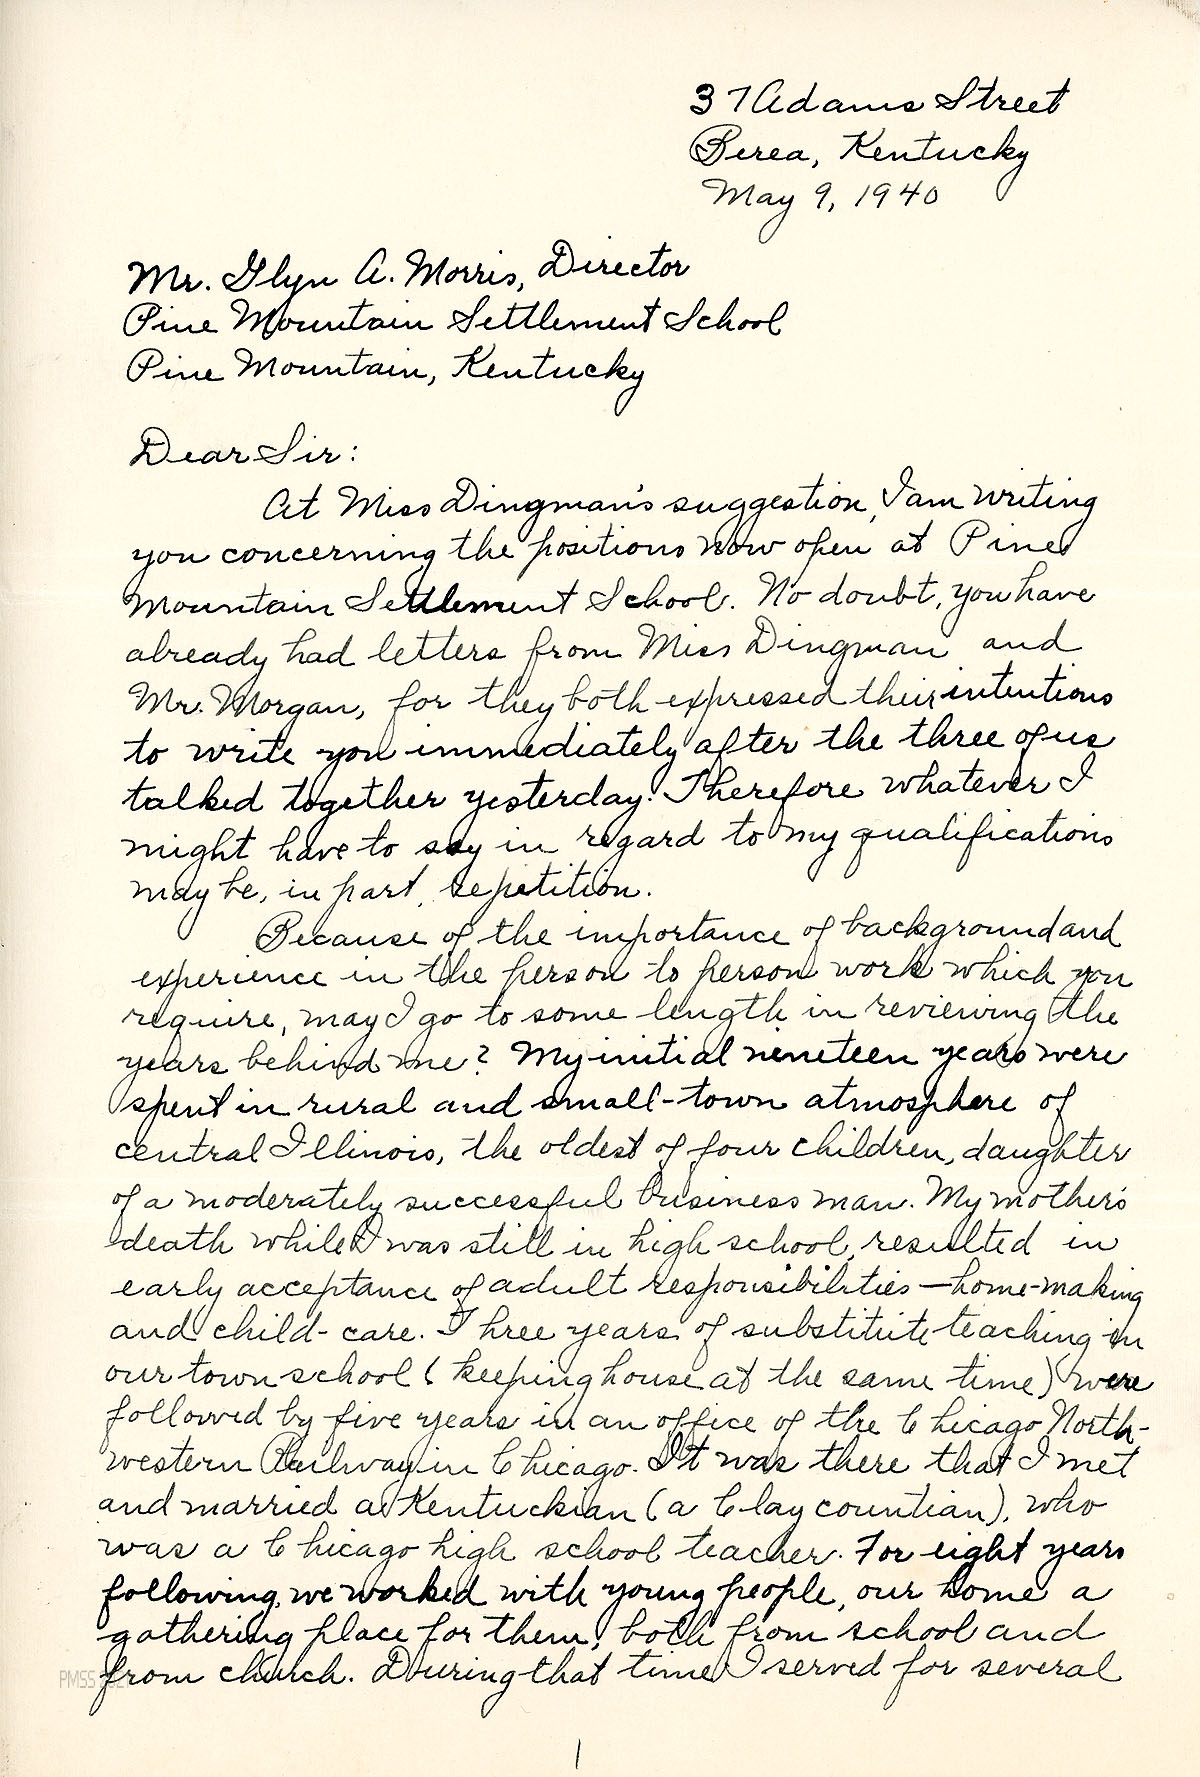 37 Adams Street
Berea, Kentucky
May 9, 1940
Mr. Glyn A. Morris, Director
Pine Mountain Settlement School
Pine Mountain, Kentucky
Dear Sir:
At Miss Dingman's suggestion, I am writing
you concerning the positions now open at Pine
Mountain Settlement School. No doubt, you have
already had letters from Miss Dingman and
Mr. Morgan, for they both expressed their intentions
to write you immediately after the three of us
talked together yesterday. Therefore whatever I
might have to say in regard to my qualifications
may be, in part, repetition.
Because of the importance of background and
experience in the person to person work which you
require, may I go to some length in reviewing the
years behind me? My initial nineteen years were
spent in rural and small-town atmosphere of
central Illinois, the oldest of four children, daughter
of a moderately successful business man. My mother's
death while I was still in high school, resulted in
early acceptance of adult responsibilities — home-making
and child-care. Three years of substitute teaching in
our town school (keeping house at the same time) were
followed by five years in an office of the Chicago North-
western Railway in Chicago. It was there that I met
and married a Kentuckian (a Clay countian), who
was a Chicago high school teacher. For eight years
following, we worked with young people, our home a
gathering place for them, both from school and
from church. During that time I served for several
PMSS
1